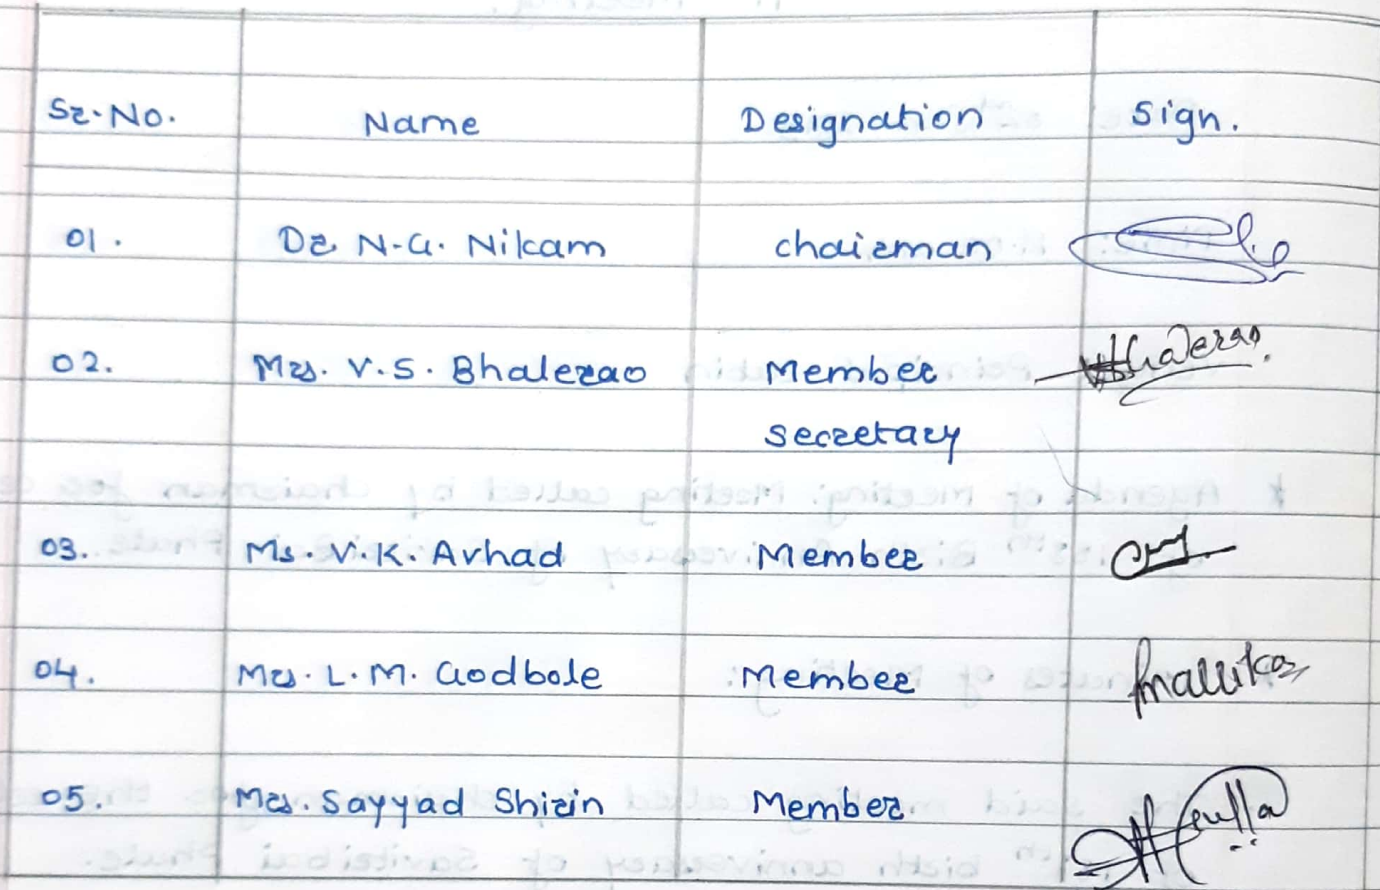 Sr. No. Name Designation Sign.
01. Dr. N. G. Nikam Chairman
02. Mrs. V. S. Bhalerao Member
Secretary
03. Ms V. K. Avhad Member
04. Mrs. L. M. Godbole Member
05. Mrs. Sayyad Shirin Member